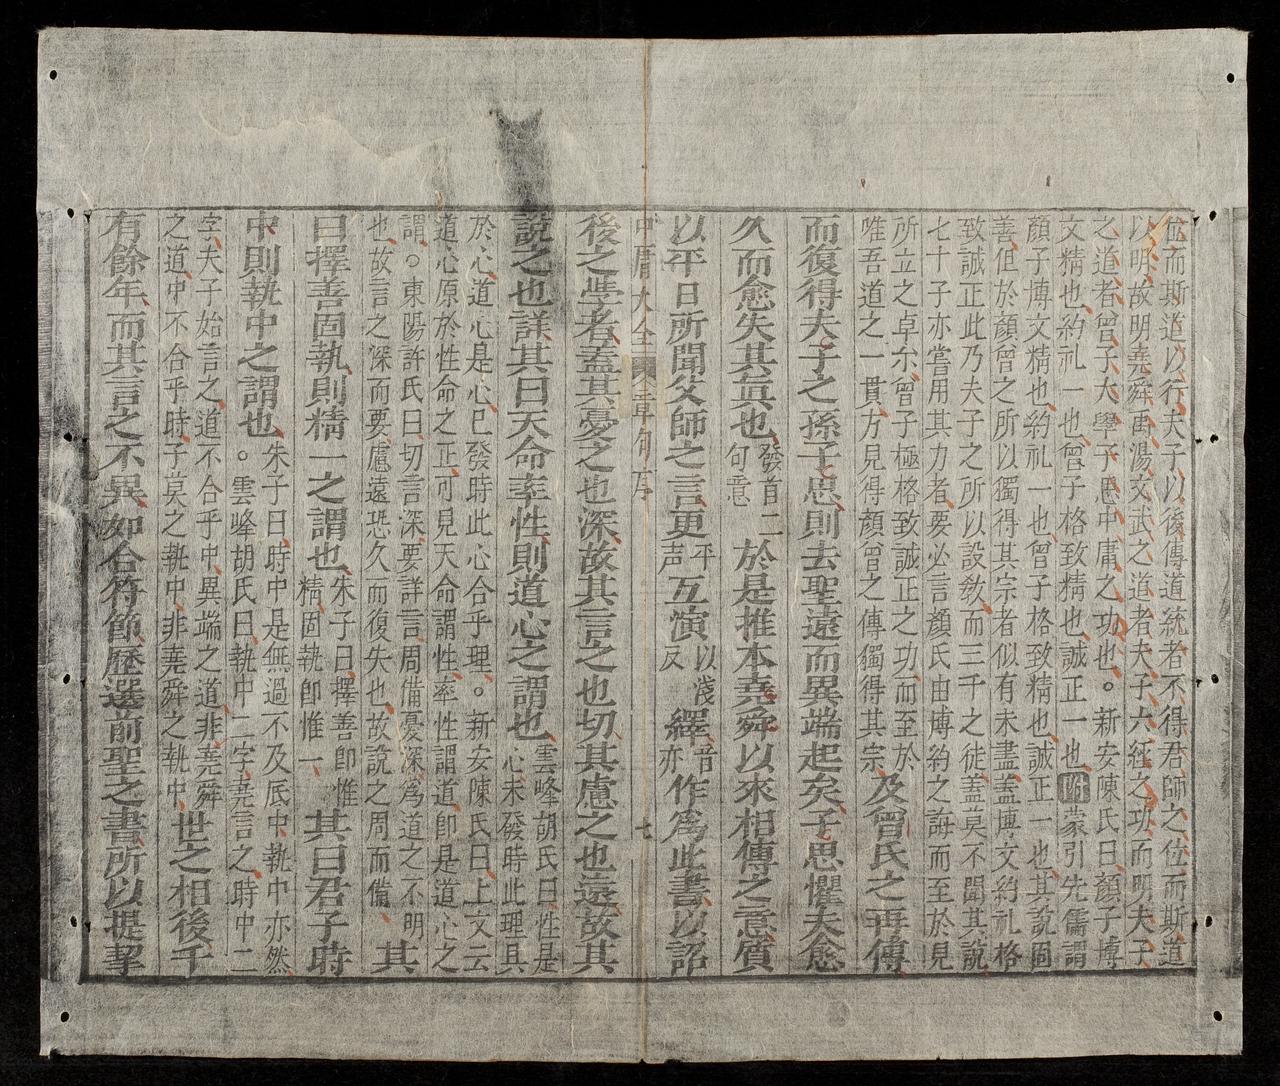 位而斯道以行夫子以後傳道統者不得君師之位而斯道
以明故明堯舜禹湯文武之道者夫子六經之功而明夫子
之道者曾子大學子思中庸之功也。新安陳氏曰顏子博
文精也約礼一也曾子格致精也誠正一也附蒙引先儒謂
顏子博文精也約礼一也曾子格致精也誠正一也其說固
善但於顏曾之所以獨得其宗者似有未盡蓋博文約礼格
致誠正此乃夫子之所以設敎而三千之徒蓋莫不聞其說
七十子亦嘗用其力者要必言顏氏由博約之誨而至於見
所立之卓尔曾子極格致誠正之功而至於
唯吾道之一貫方見得顏曾之傳獨得其宗及曾氏之再傳
而復得夫子之孫子思則去聖遠而異端起矣子思懼夫愈
久而愈失其眞也發首二句意於是推本堯舜以來相傳之意質
以平日所聞父師之言更平声互演以淺反繹音亦作爲此書以詔
中庸大全 章句序 七
後之學者蓋其憂之也深故其言之也切其慮之也遠故其
說之也詳其曰天命率性則道心之謂也雲峰胡氏曰性是
心未發時此理具
於心道心是心已發時此心合乎理。新安陳氏曰上文云
道心原於性命之正可見天命謂性率性謂道卽是道心之
謂。東陽許氏曰切言深要詳言周備憂深爲道之不明
也故言之深而要慮遠恐久而復失也故說之周而備其
曰擇善固執則精一之謂也朱子曰擇善卽惟
精固執卽惟一其曰君子時
中則執中之謂也朱子曰時中是無過不及底中執中亦然
。雲峰胡氏曰執中二字堯言之時中二
字夫子始言之道不合乎中異端之道非堯舜
之道中不合乎時子莫之執中非堯舜之執中世之相後千
有餘年而其言之不異如合符節歷選前聖之書所以提挈